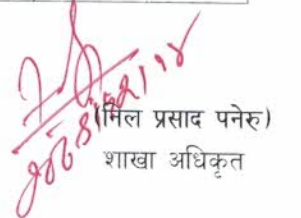 (मिल प्रसाद पनेरु)
शाखा अधिकृत